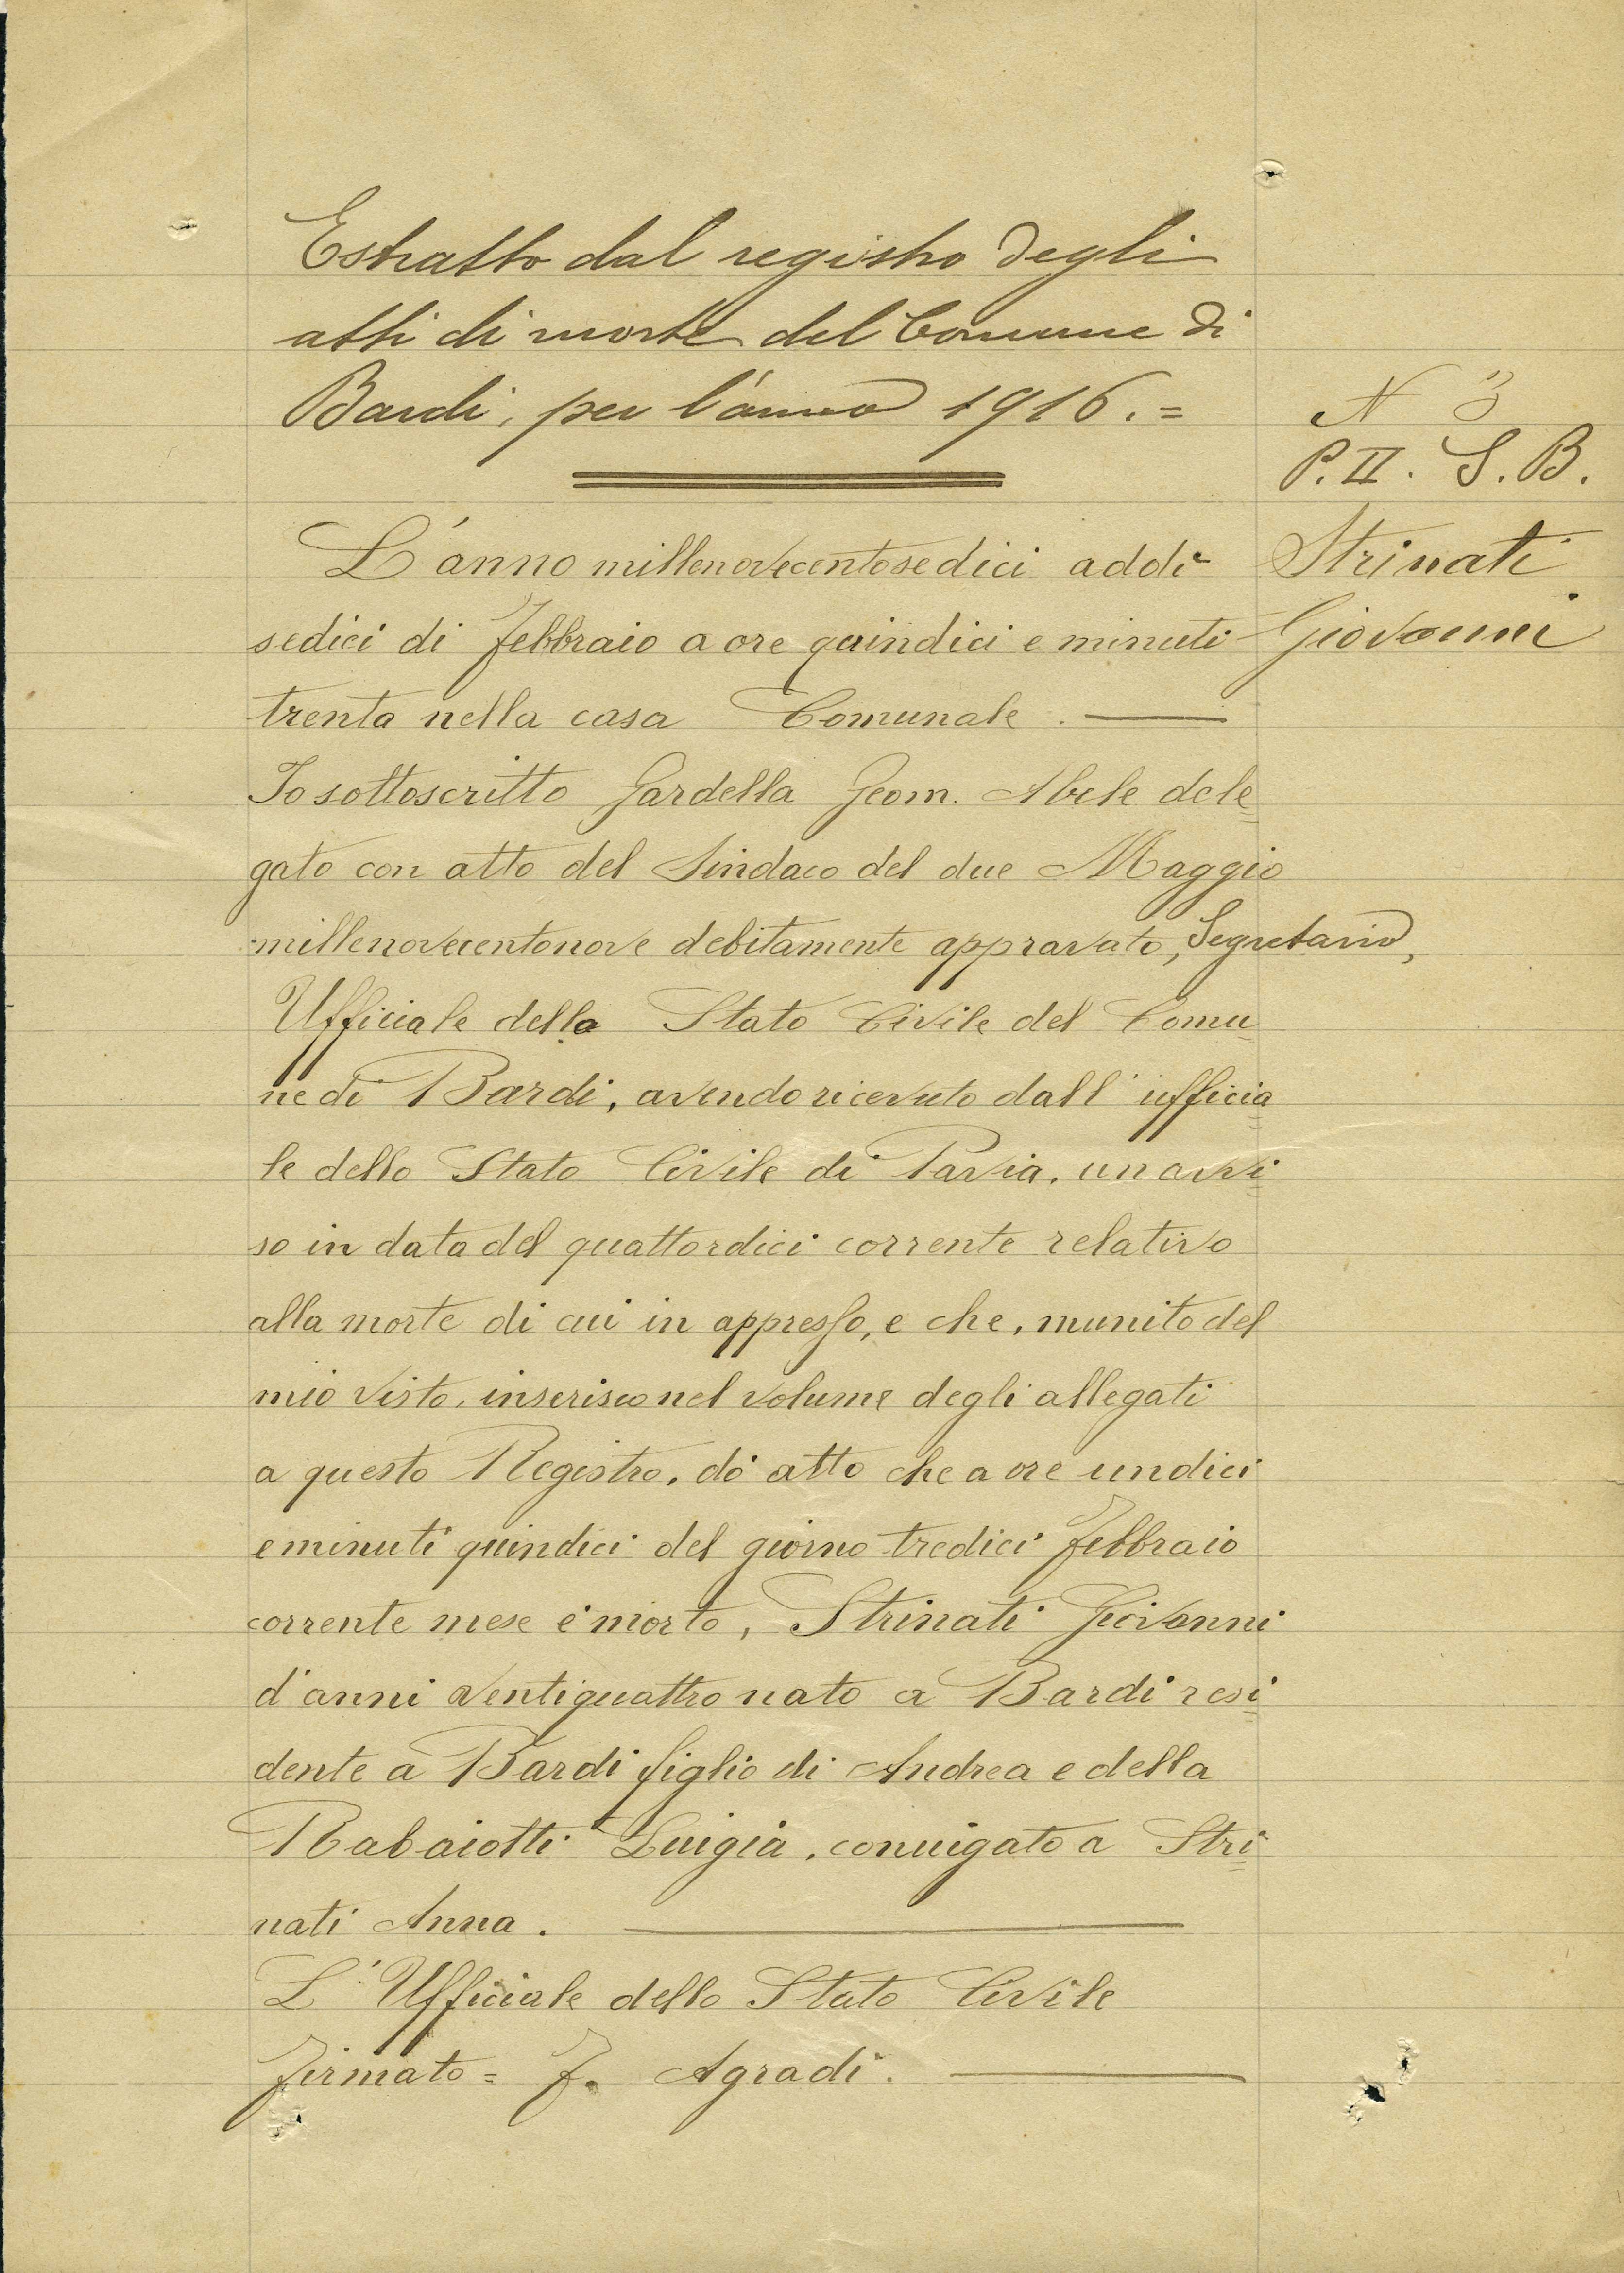 Estratto dal registro degli
atti di morte del Comune di
Bardi, per l'anno 1916. =
N 3
P. II. S. B.
Strinati
Giovanni
L'anno millenovecentosedici addì
sedici di Febbraio a ore quindici e minuti
trenta nella casa Comunale. —
Io sottoscritto Gardella Geom. Abele dele=
gato con atto del Sindaco del due Maggio
millenovecentonove debitamente approvato, Segretario,
Ufficiale dello Stato Civile del Comu
ne di Bardi, avendo ricevuto dall'ufficia=
le dello Stato Civile di Pavia, un avvi=
so in data del quattordici corrente relativo
alla morte di cui in appresso, e che, munito del
mio visto, inserisco nel volume degli allegati
a questo Registro, dò atto che a ore undici
e minuti quindici del giorno tredici Febbraio
corrente mese è morto, Strinati Giovanni
d'anni ventiquattro nato a Bardi resi=
dente a Bardi figlio di Andrea e della
Rabaiotti Luigia, coniugato a Stri=
nati Anna. —
L'Ufficiale dello Stato Civile
Firmato = F. Agradi. —